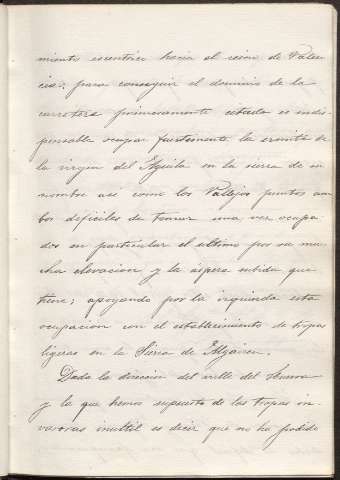 miento escentrico hacia el reino de Valen
cia: para conseguir el dominio de la
carretera primeramente citada es indis
pensable ocupar fuertemente la ermita de
la virgen del Aguila en la sierra de su
nombre asi como los Vallejos puntos am
bos dificiles de tomar una vez ocupa
dos en particular el ultimo por su mu
cha elevacion y la aspera subida que
tiene; apoyando por la izquierda esta
ocupacion con el establecimiento de tropas
ligeras en la Sierra de Algairen.
Dada la direccion del valle del
y la que hemos supuesto de las tropas in
vasoras inutil es decir que no ha podido